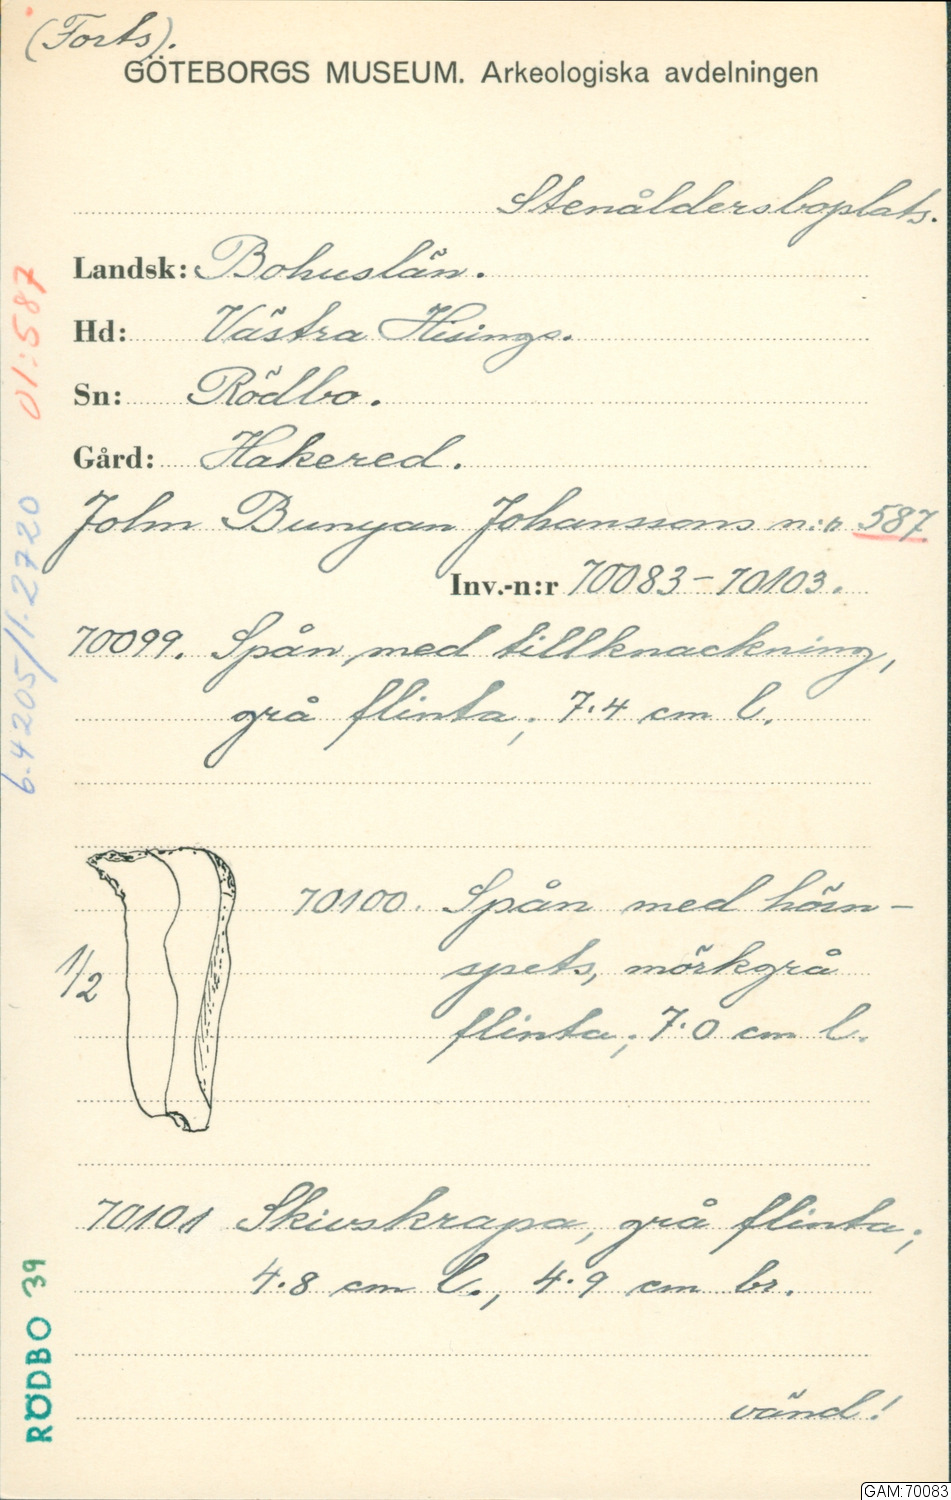 (Forts).
GÖTEBORGS MUSEUM. Arkeologiska avdelningen
Stenåldersboplats.
Landsk: Bohuslän.
Hd: Västra Hisings.
Sn: Rödbo.
Gård: Hakered.
John Bunyan Johanssons n:r 587
Inv.-n:r 70083-70103.
70099. Spån, med tillknackning,
grå flinta; 7.4 cm l.
1/2
70100. Spån med hörn-
spets, mörkgrå
flinta; 7.0 cm l.
70101 Skivskrapa, grå flinta;
4.8 cm l., 4.9 cm br.
vänd!
01:587
6.4205/1.2720
RÖDBO 39
GAM:70083